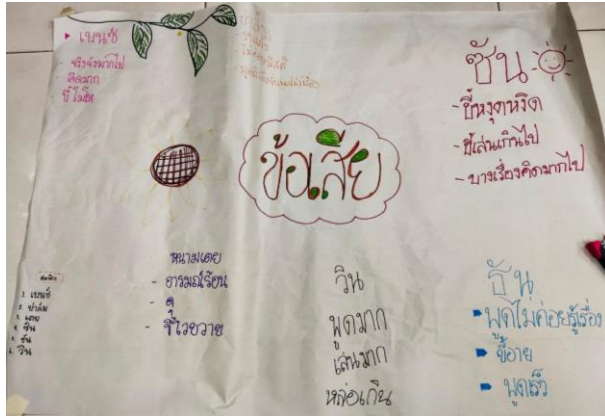 เบนซ์
จริงจังมากไป
คิดมาก
ขี้โมโห
ซัน
- ขี้หงุดหงิด
- ขี้เล่นเกินไป
- บางเรื่องคิดมากไป
ข้อเสีย
หนามเตย
- อารมณ์ร้อน
- ดุ
- ขี้โวยวาย
วิน
พูดมาก
เล่นมาก
หล่อเกิน
ธัน
พูดไม่ค่อยรู้เรื่อง
ขี้อาย
พูดเร็ว
สมาชิก
1. เบนซ์
2. ปาล์ม
3. เตย
4. ธัน
5. ซัน
6. วิน